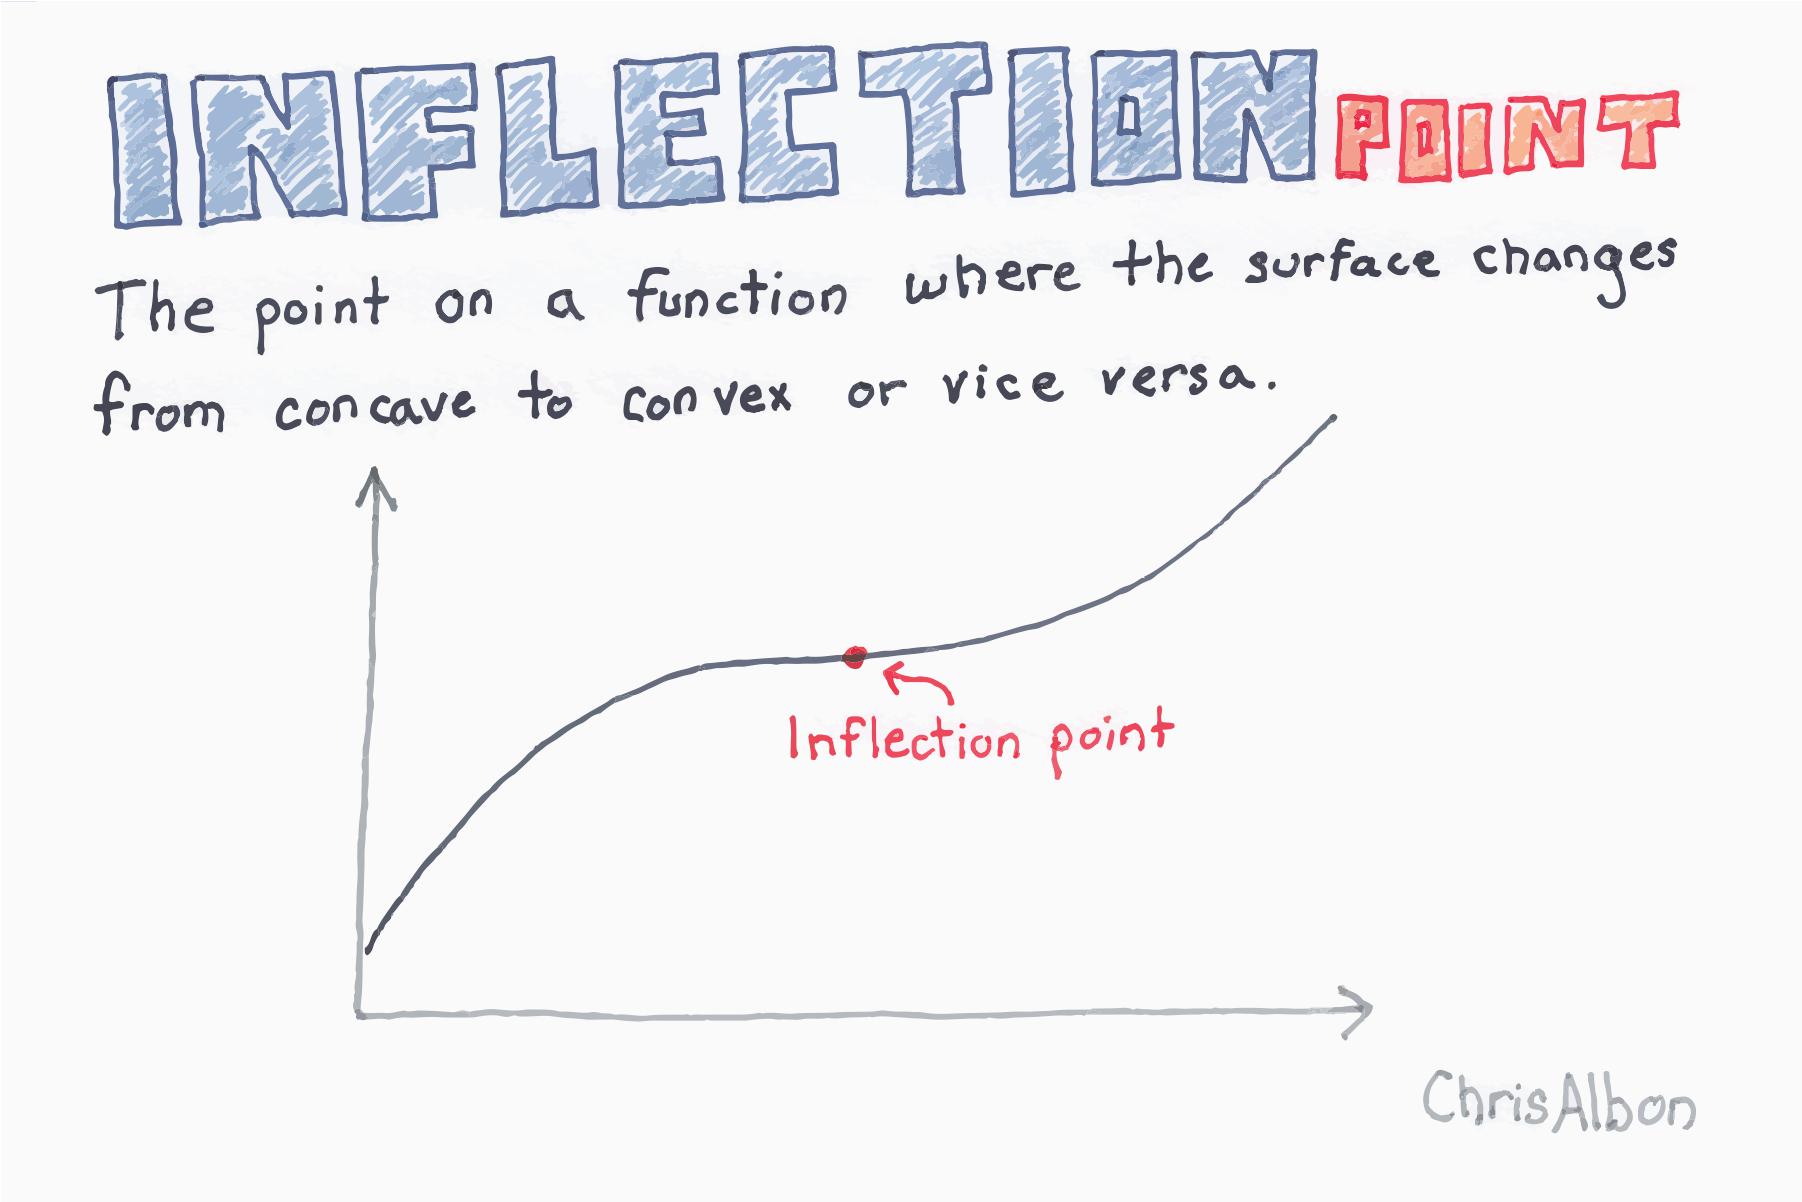 INFLECTION POINT
The point on a function where the surface changes
from concave to convex or vice versa.
Inflection point
ChrisAlbon